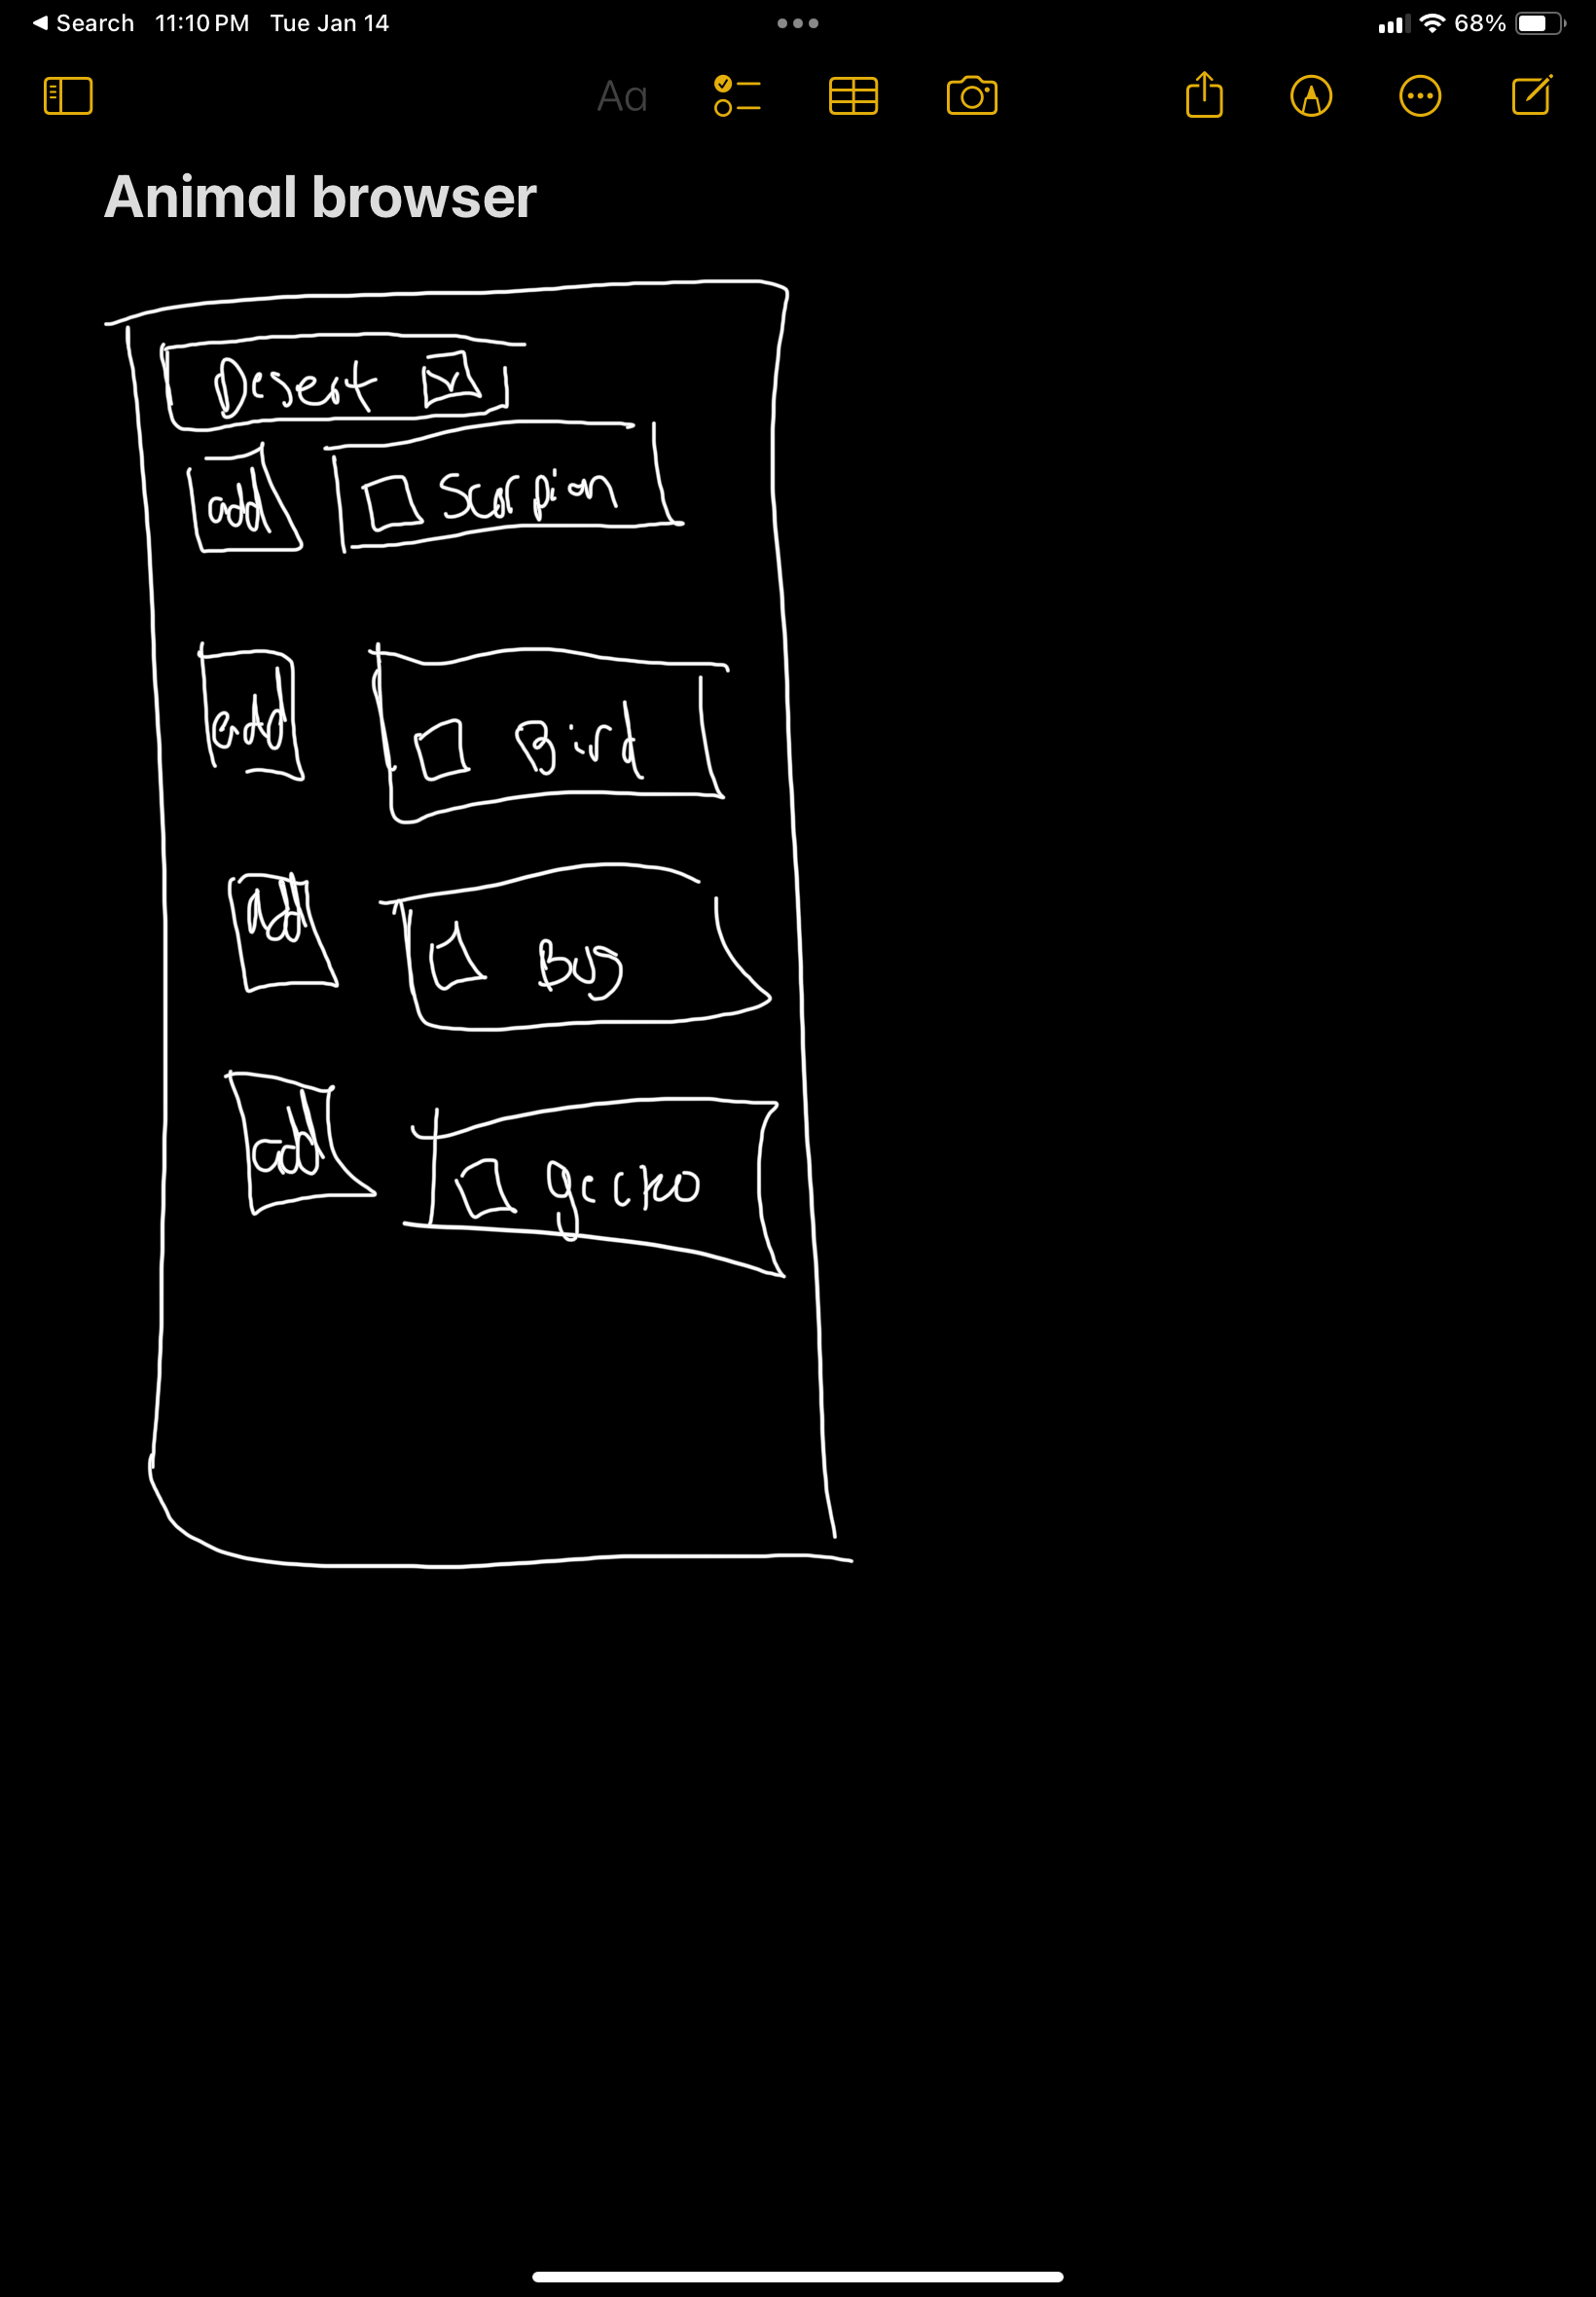 Search 11:10 PM Tue Jan 14 68%
Aa
Animal browser
Desert
add Scorpion
add Bird
add Bug
add gecko